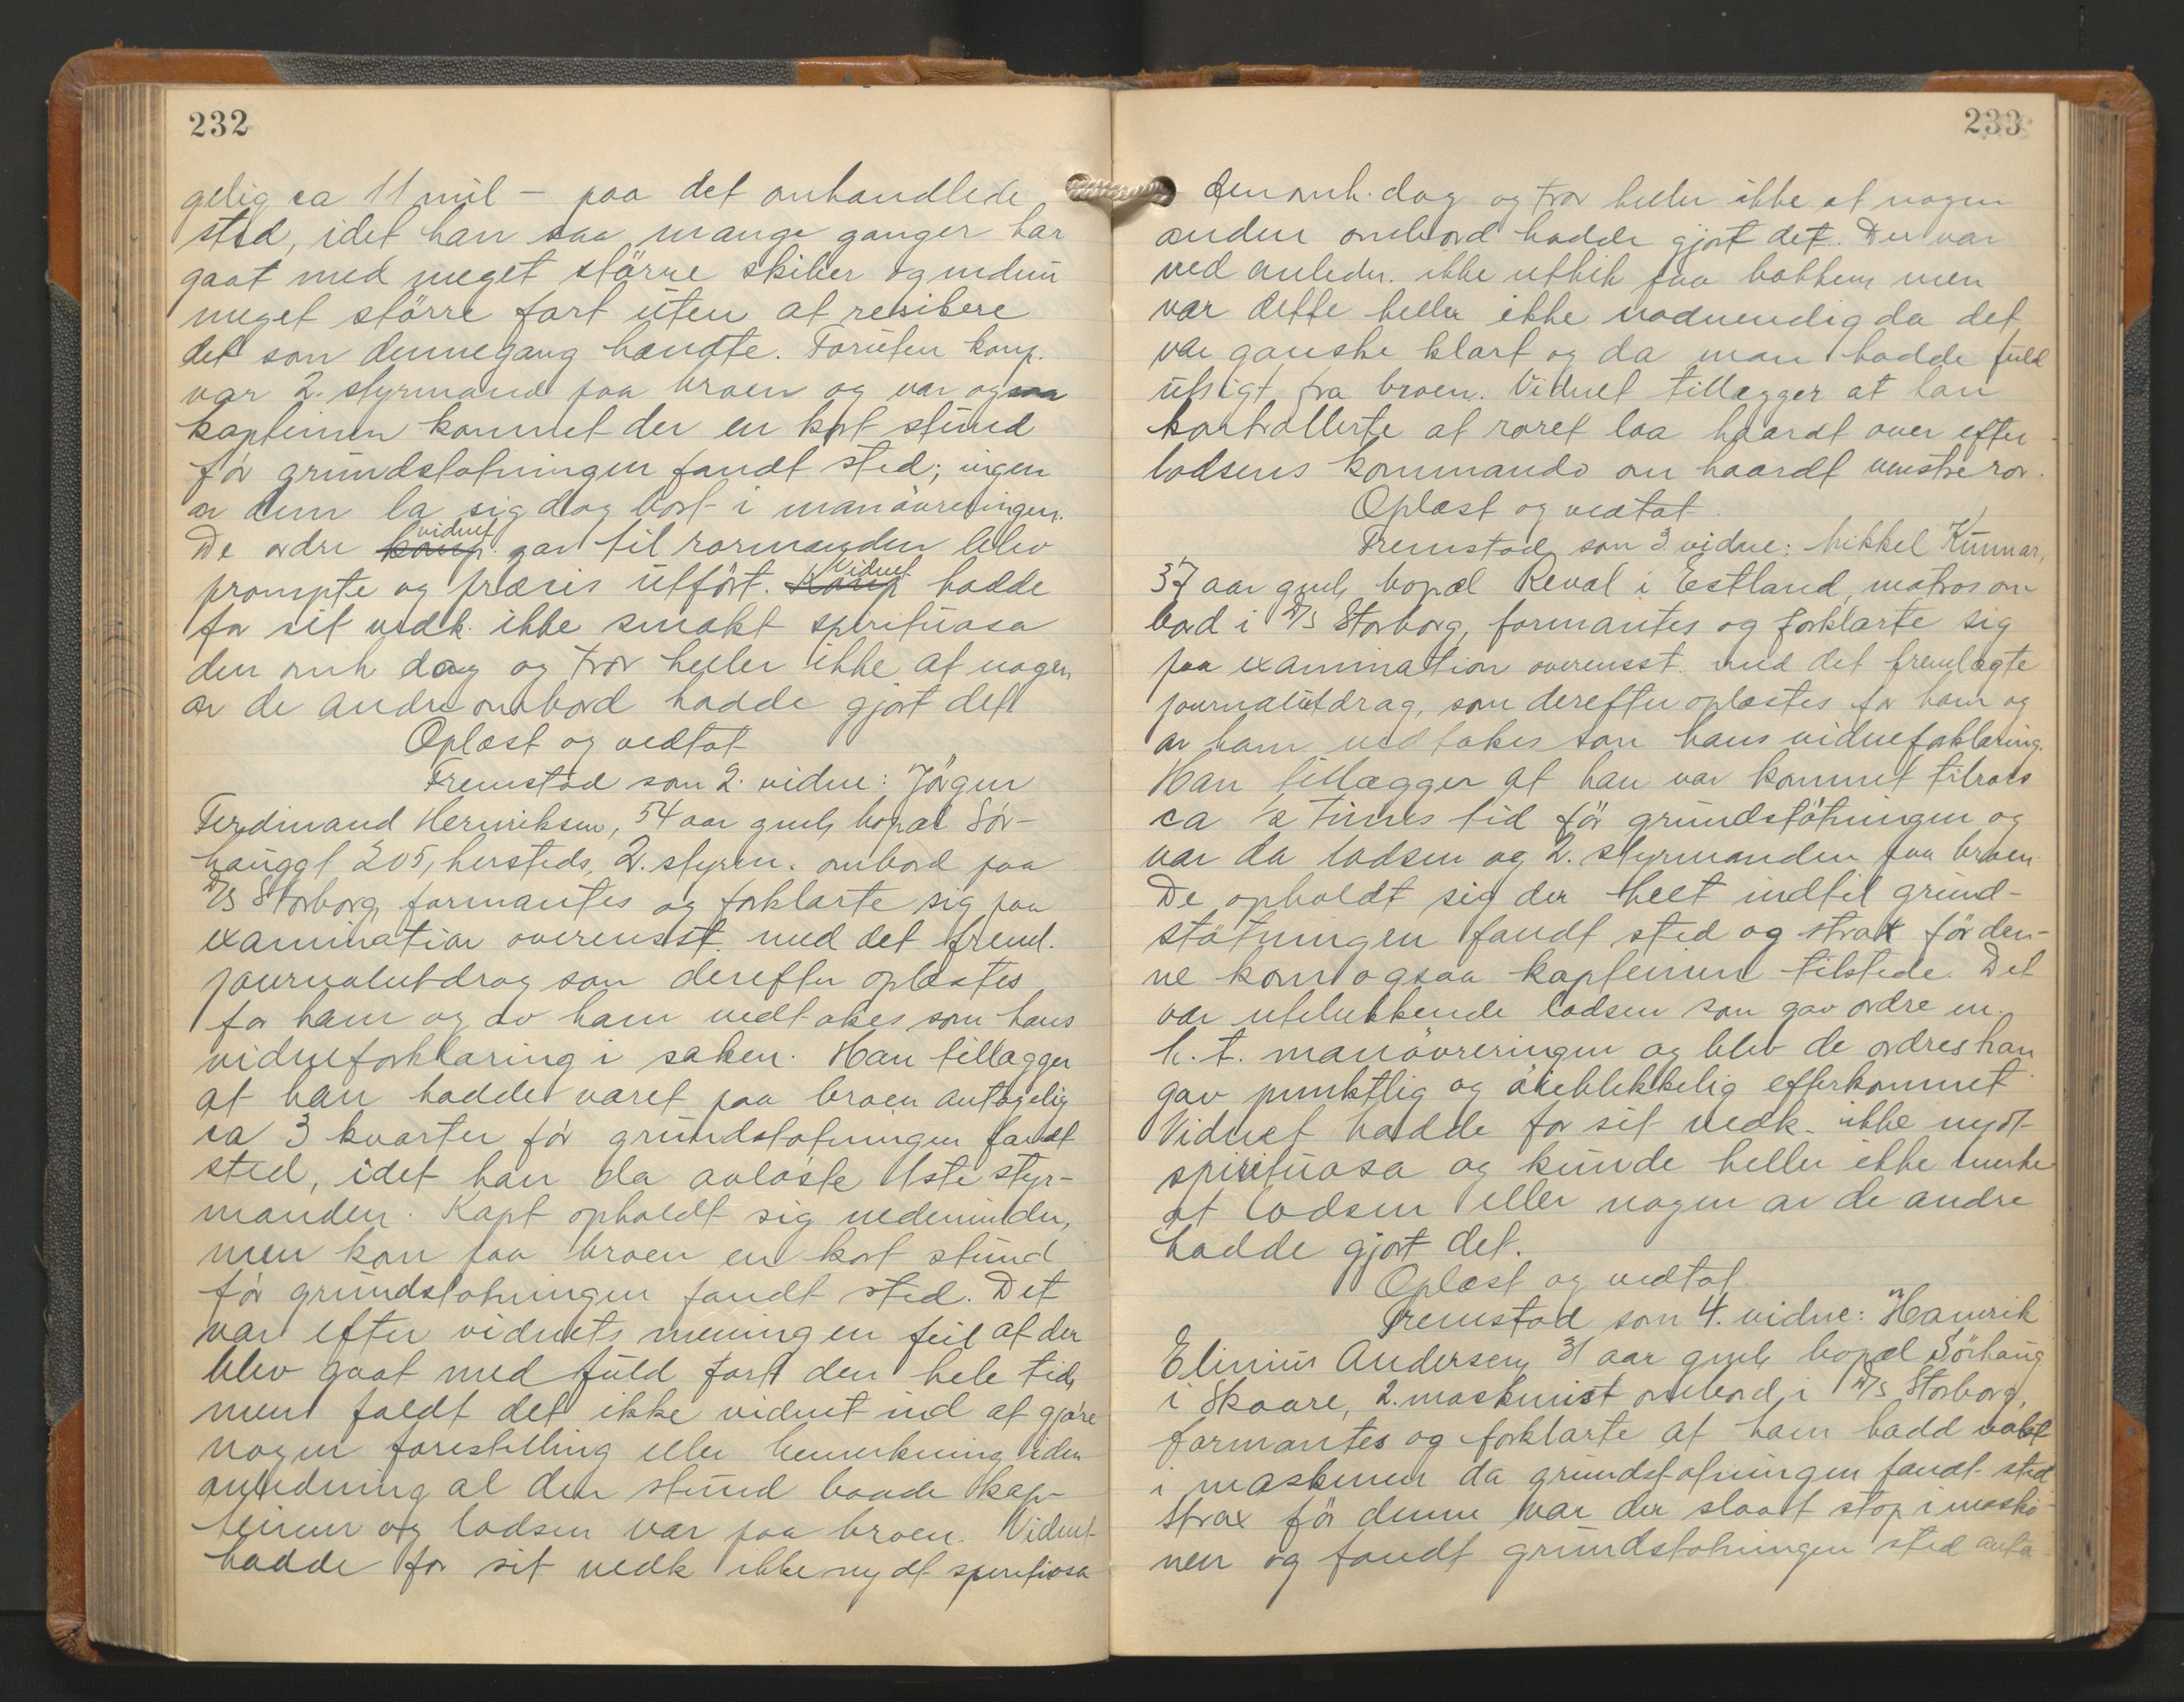 232
gelig ca 11 mil - paa det omhandlede
sted, idet han saa mange ganger har
gaat med meget större skiber og med en
meget större fart uten at resikere
det som dennegang hændte. Foruten komp.
var 2. styrmand paa broen og var ogsaa
kapteinen kommet der en kort stund
för grundstötningen fandt sted; ingen
av dem la sig dog bort i manövreringen.
De ordre komp. vidnet gav til rormanden blev
prompte og præsis utfört. Komp Vidnet hadde
for sit vedk. ikke smakt spirituosa
den omh dag og tror heller ikke at nogen
av de andre ombord hadde gjort det
Oplæst og vedtat
Fremstod som 2. vidne: Jörgen
Ferdinand Henriksen, 54 aar gml, bopæl Sör-
hauggt 205, hersteds, 2. styrm. ombord paa
D/S Storborg formantes og forklarte sig paa
examination overensst. med det freml.
journalutdrag som derefter oplæstes
for ham og av ham vedtokes som hans
vidneforklaring i saken. Han tillægger
at han hadde været paa broen antagelig
ca 3 kvarter för grundstötningen fandt
sted, idet han da avlöste 1ste styr-
manden. Kapt opholdt sig nedenunder,
men kom paa broen en kort stund
för grundstötningen fandt sted. Det
var efter vidnets mening en feil at der
blev gaat med fuld fart den hele tid,
men faldt det ikke vidnet ind at gjöre
nogen forestilling eller bemerkning i den
anledning al den stund baade kap-
teinen og lodsen var paa broen. Vidnet
hadde for sit vedk ikke nydt spirituosa
233
den omh. dag og tror heller ikke at nogen
anden ombord hadde gjort det. Der var
ved anledn. ikke utkik paa bakken, men
var dette heller ikke nödvendig da det
var ganske klart og da man hadde fuld
utsigt fra broen. Vidnet tillægger at han
kontrollerte at roret laa haardt over efter
lodsens kommando om haardt venstre ror.
Oplæst og vedtat.
Fremstod som 3. vidne: Mikkel Kunnar,
37 aar gml, bopæl Reval i Estland, matros om
bord i D/S Storborg, formantes og forklarte sig
paa examination overensst. med det fremlagte
journalutdrag, som derefter oplæstes for ham og
av ham vedtokes som hans vidneforklaring.
Han tillægger at han var kommet tilrors
ca ½ times tid för grundstötningen og
var da lodsen og 2. styrmanden paa broen.
De opholdt sig der helt indtil grund-
stötningen fandt sted og strax för den-
ne kom ogsaa kapteinen tilstede. Det
var utelukkende lodsen som gav ordre m.
h. t. manövreringen og blev de ordres han
gav punktlig og öieblikkelig efterkommet.
Vidnet hadde for sit vedk. ikke nydt
spirituosa og kunde heller ikke merke
at lodsen eller nogen av de andre
hadde gjort det.
Oplæst og vedtat.
Fremstod som 4. vidne: Hamrik
Andersen, 31 aar gml, bopæl Sörhaug
i Skaare, 2. maskinist ombord i D/S Storborg,
formantes og forklarte at ham hadd vakt
i maskinen da grundstötningen fandt sted
Strax för denne var der slaat stop i maski-
nen og fandt grundstötningen sted anta-